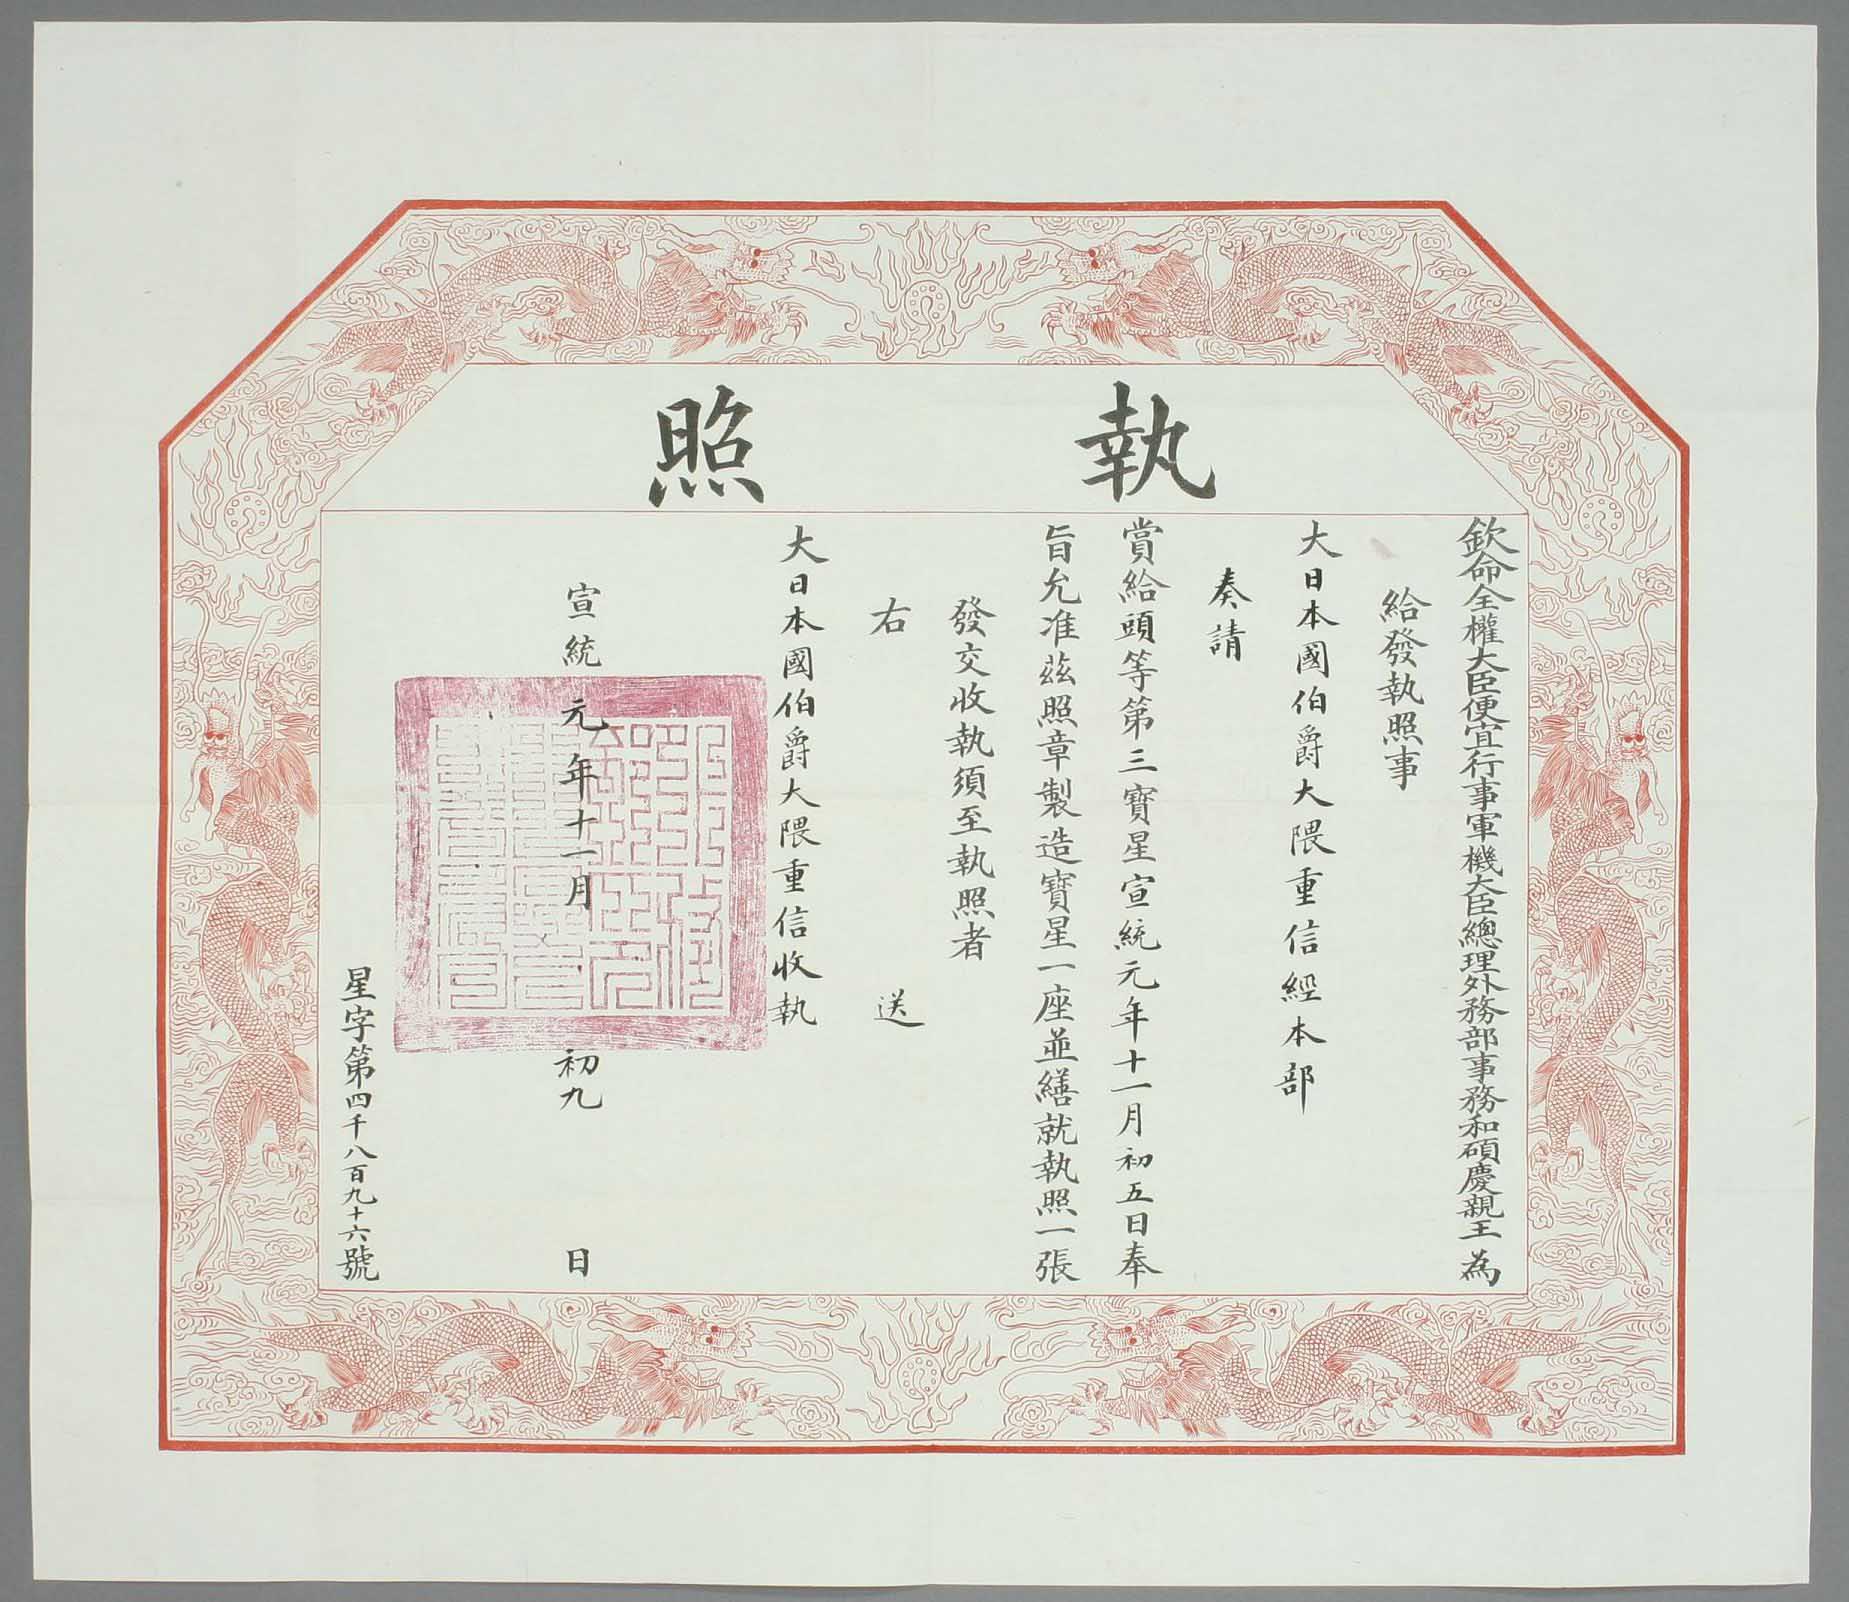 執照
欽命全權大臣便宜行事軍機大臣總理外務部事務和碩慶親王為
給發執照事
大日本國伯爵大隈重信經本部
奏請
賞給頭等第三寶星宣統元年十一月初五日奉
旨允准茲照章製造寶星一座並繕就執照一張
發交收執須至執照者
右送
大日本國伯爵大隈重信收執
宣統元年十一月初九日
星字第四千八百九十六號